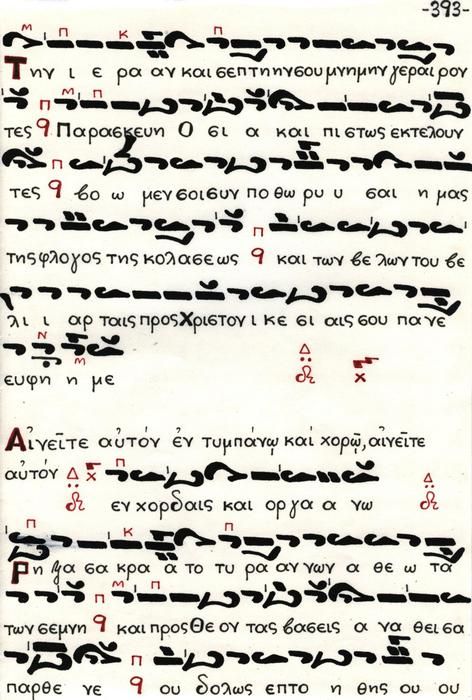 -393-
Την ι ε ρα αν και σεπτην ην σου μνημην γεραι ρον
τες Παρασκευη Ο σι α και πι στως εκτελουν
τες βο ω μεν σοι συν πο θω ρυ υ σαι η μας
της φλογος της κολασεως και των βε λων του βε
λι ι αρ ταις προς Χριστον ι κε σι αις σου πα νε
ευφη η με
Αἰνεῖτε αὐτόν ἐν τυμπάνῳ καί χορῷ, αἰνεῖτε
αὐτόν
εν χορδαις και οργα α νω
Ρη ξα σα κρα α το τυ ρα αν νων α θε ω τα
των σεμνη και προς Θε ον τας βασεις α να θει σα
παρθε νε ου δολως επτο η θης ου ου